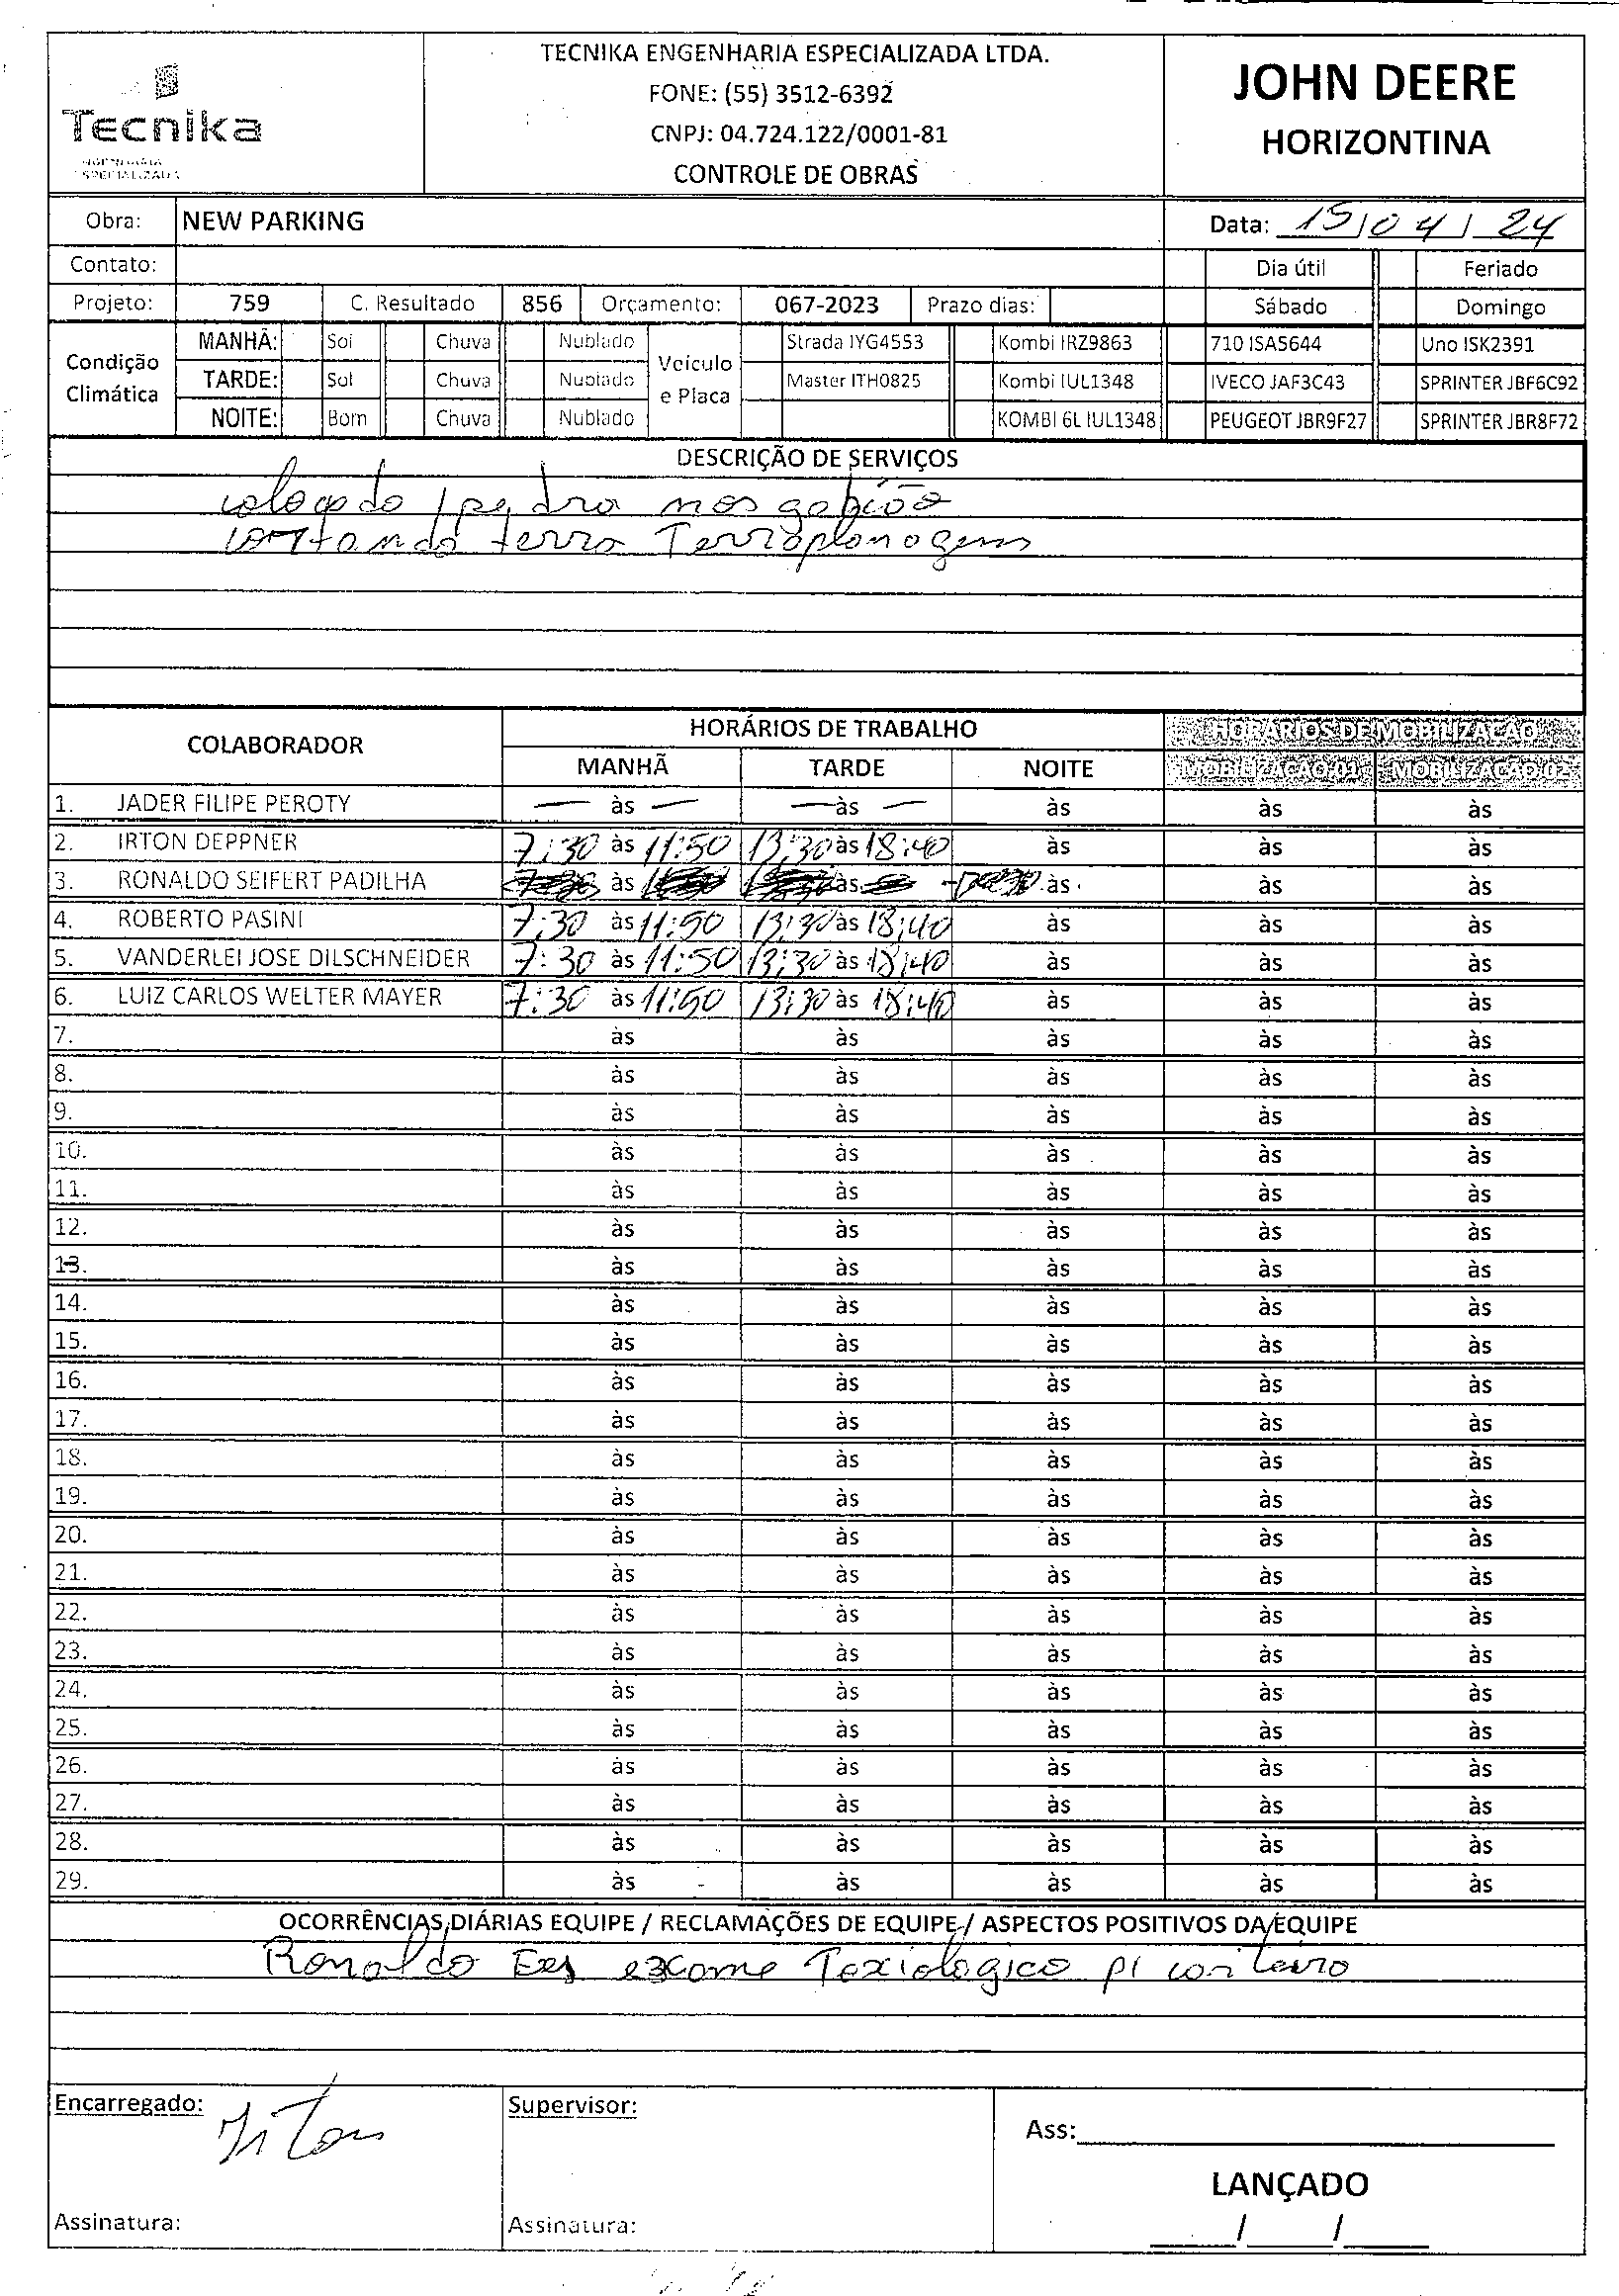 TECNIKA ENGENHARIA ESPECIALIZADA LTDA.
FONE: (55) 3512-6392
CNPJ: 04.724.122/0001-81
CONTROLE DE OBRAS
Tecnika
ENGENHARIA
ESPECIALIZADA
JOHN DEERE
HORIZONTINA
Obra: NEW PARKING Data: 15/04/24
Contato: Dia útil Feriado
Projeto: 759 C. Resultado 856 Orçamento: 067-2023 Prazo dias: Sábado Domingo
Condição Climática
Veículo e Placa
MANHÃ: Sol Chuva Nublado Strada IYG4553 Kombi IRZ9863 710 ISA5644 Uno ISK2391
TARDE: Sol Chuva Nublado Master ITH0825 Kombi IUL1348 IVECO JAF3C43 SPRINTER JBF6C92
NOITE: Bom Chuva Nublado KOMBI 6L IUL1348 PEUGEOT JBR9F27 SPRINTER JBR8F72
DESCRIÇÃO DE SERVIÇOS
colocado pedra nos gabião
cortando terra Terraplanagem
COLABORADOR HORÁRIOS DE TRABALHO HORÁRIOS DE MOBILIZAÇÃO
MANHÃ TARDE NOITE MOBILIZAÇÃO 01 MOBILIZAÇÃO 02
1. JADER FILIPE PEROTY — às — — às — às às às
2. IRTON DEPPNER 7:30 às 11:50 13:30 às 18:40 às às às
3. RONALDO SEIFERT PADILHA às às às às às
4. ROBERTO PASINI 7:30 às 11:50 13:30 às 18:40 às às às
5. VANDERLEI JOSE DILSCHNEIDER 7:30 às 11:50 13:30 às 18:40 às às às
6. LUIZ CARLOS WELTER MAYER 7:30 às 11:50 13:30 às 18:40 às às às
7. às às às às às
8. às às às às às
9. às às às às às
10. às às às às às
11. às às às às às
12. às às às às às
13. às às às às às
14. às às às às às
15. às às às às às
16. às às às às às
17. às às às às às
18. às às às às às
19. às às às às às
20. às às às às às
21. às às às às às
22. às às às às às
23. às às às às às
24. às às às às às
25. às às às às às
26. às às às às às
27. às às às às às
28. às às às às às
29. às às às às às
OCORRÊNCIAS DIÁRIAS EQUIPE / RECLAMAÇÕES DE EQUIPE / ASPECTOS POSITIVOS DA EQUIPE
Ronaldo exame Toxiologico p/
Encarregado: Irton Supervisor:
Ass:
LANÇADO
Assinatura: Assinatura: / /